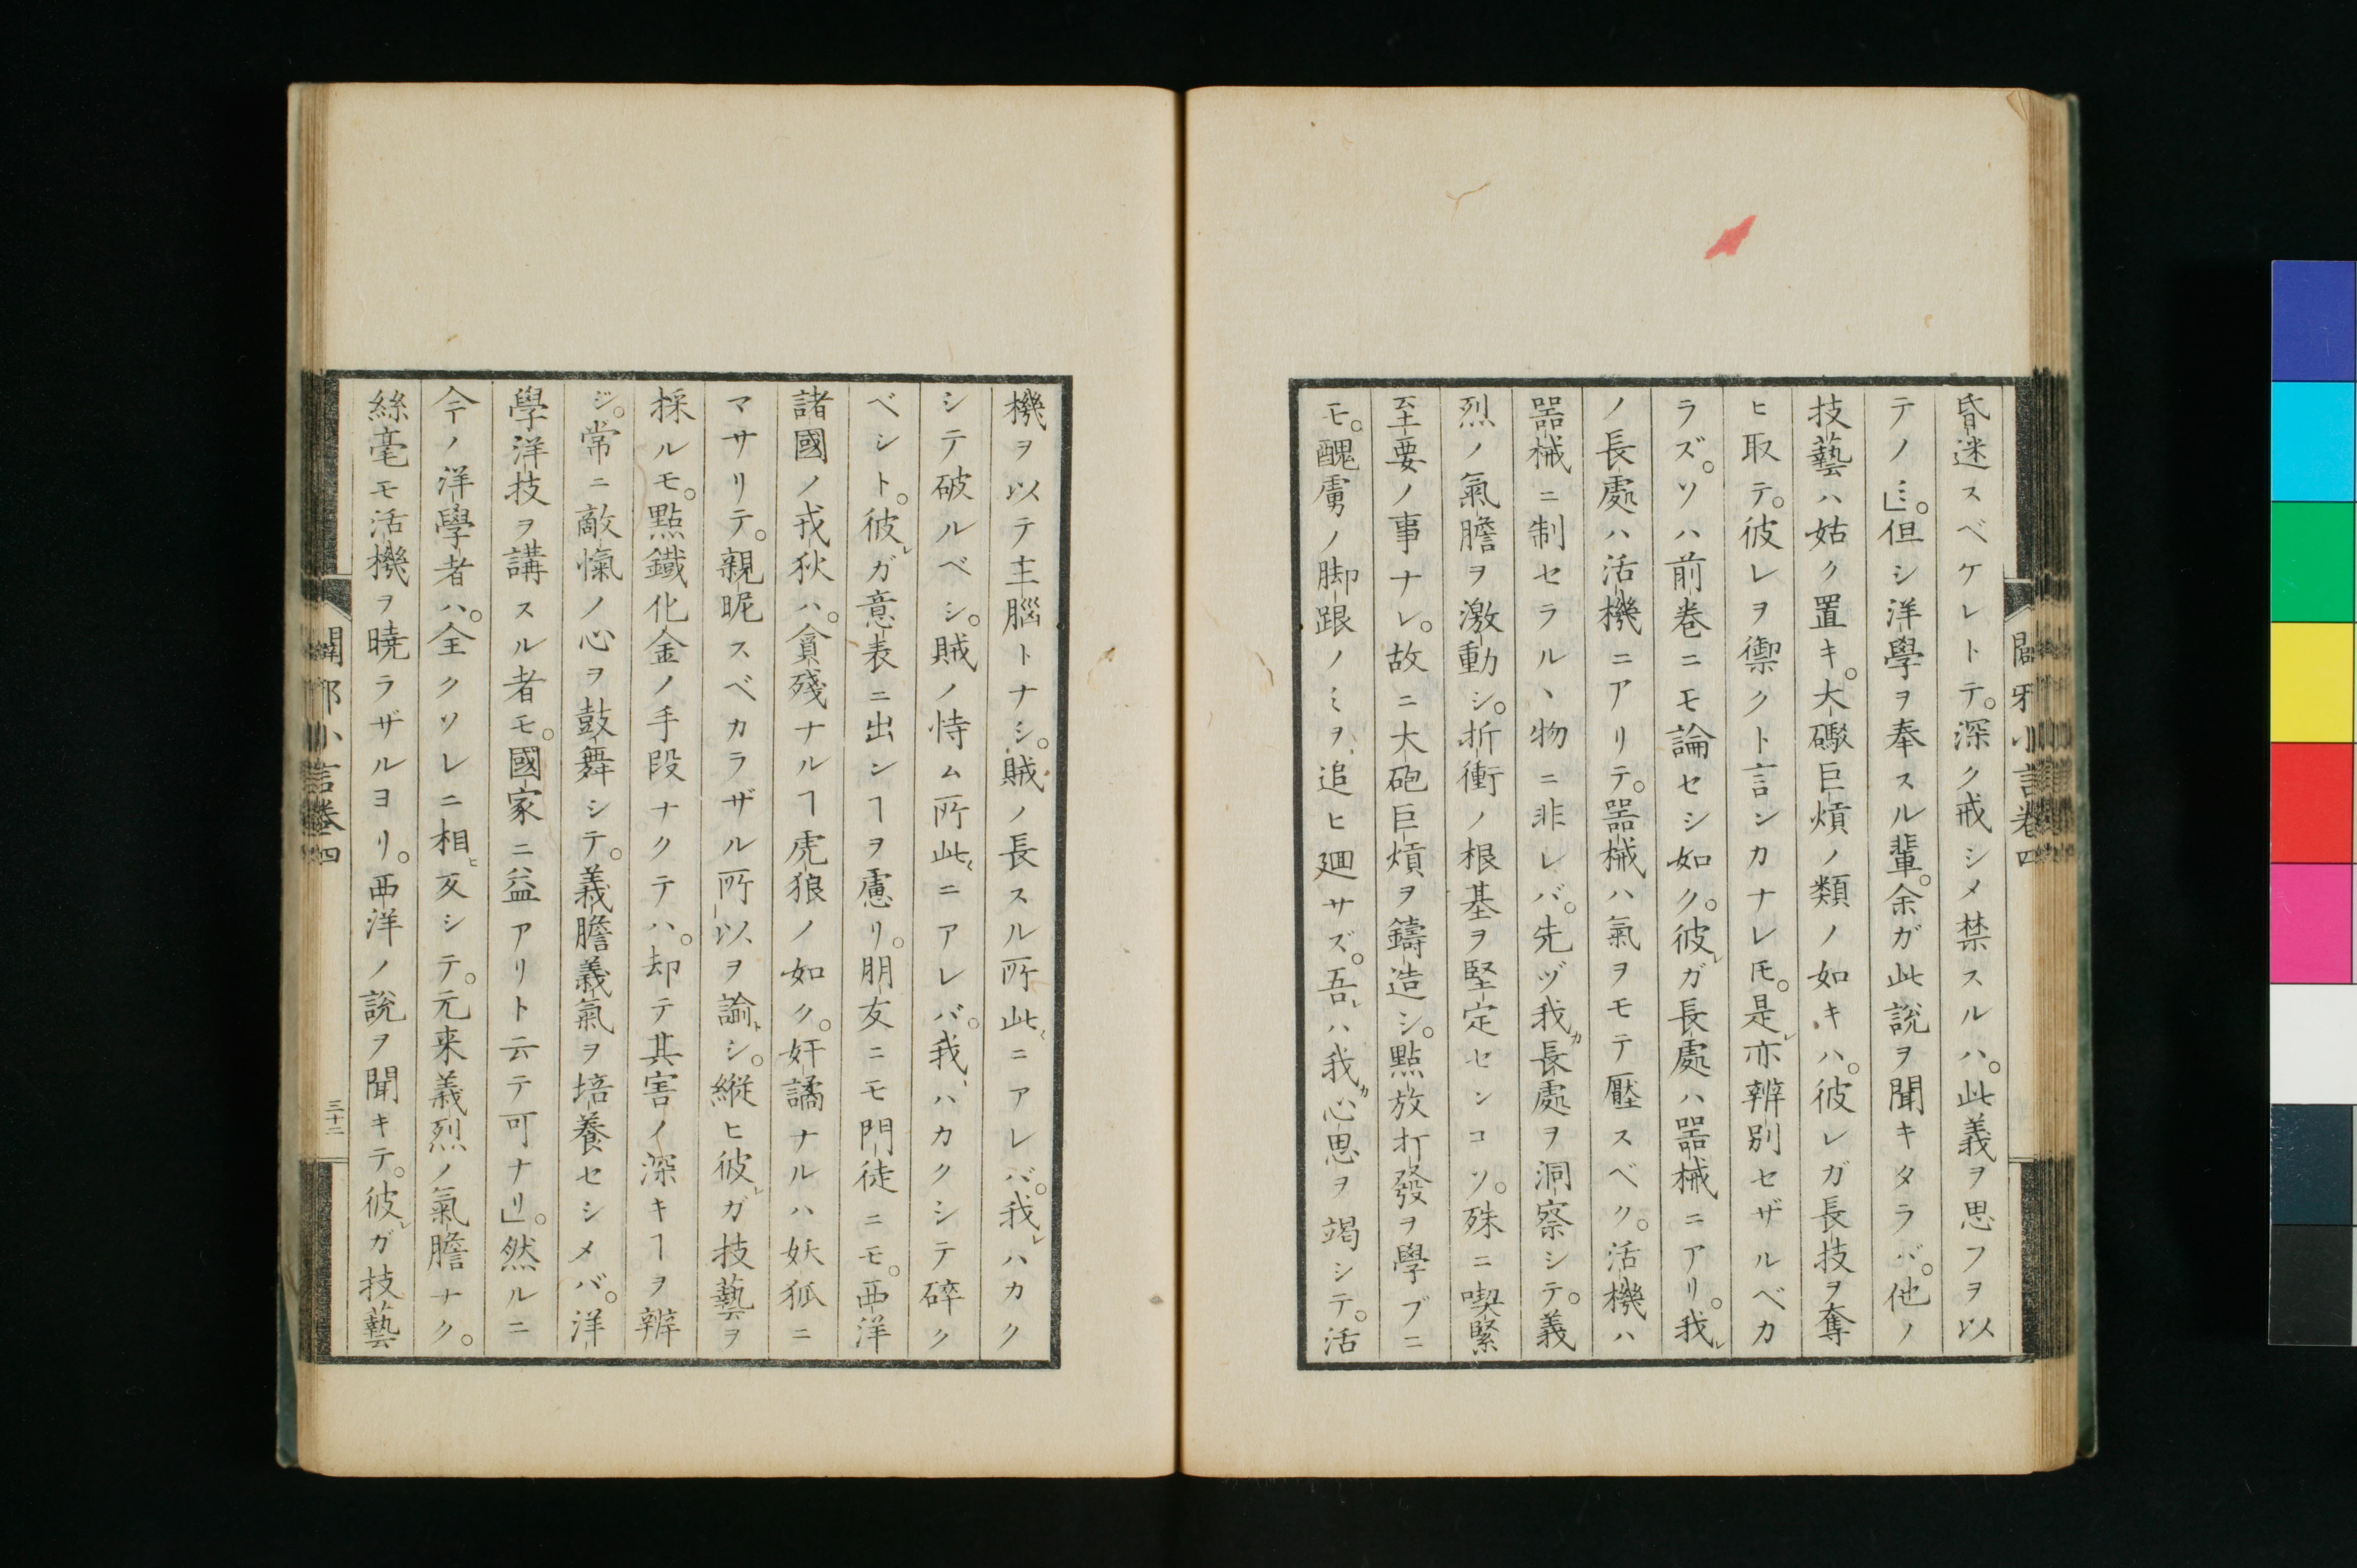 昏迷スベケレトテ。深ク戒シメ禁スルハ。此義ヲ思フヲ以
テノミ」。但シ洋學ヲ奉スル輩。余ガ此説ヲ聞キタラバ。他ノ
技藝ハ姑ク置キ。大礮巨熕ノ類ノ如キハ。彼レガ長技ヲ奪
ヒ取テ。彼レヲ禦クト言ンカナレ𪜈。是レ亦辨別セザルベカ
ラズ。ソハ前巻ニモ論セシ如ク。彼レガ長處ハ噐械ニアリ。我レ
ノ長處ハ活機ニアリテ。噐械ハ氣ヲモテ壓スベク。活機ハ
噐械ニ制セラル丶物ニ非レバ。先ヅ我カ長處ヲ洞察シテ。義
烈ノ氣膽ヲ激動シ。折衝ノ根基ヲ堅定センコソ。殊ニ喫緊
至要ノ事ナレ。故ニ大砲巨熕ヲ鑄造シ。點放打發ヲ學ブニ
モ。醜虜ノ脚跟ノミヲ追ヒ廻サズ。吾レハ我カ心思ヲ竭シテ。活
機ヲ以テ主腦トナシ。賊ノ長スル所此ニアレバ。我レハカク
シテ破ルベシ。賊ノ恃ム所此ニアレバ。我ハカクシテ碎ク
ベシト。彼レガ意表ニ出ンヿヲ慮リ。朋友ニモ門徒ニモ。西洋
諸國ノ戎狄ハ。貪殘ナルヿ虎狼ノ如ク。奸譎ナルハ妖狐ニ
マサリテ。親昵スベカラザル所以ヲ諭トシ。縦ヒ彼レガ技藝ヲ
採ルモ。點鐵化金ノ手段ナクテハ。却テ其害ノ深キヿヲ辨
ジ。常ニ敵愾ノ心ヲ鼓舞シテ。義膽義氣ヲ培養セシメバ。洋
學洋技ヲ講スル者モ。國家ニ益アリト云テ可ナリ」。然ルニ
今ノ洋學者ハ。全クソレニ相ヒ反シテ。元来義烈ノ氣膽ナク。
絲毫モ活機ヲ曉ラザルヨリ。西洋ノ説ヲ聞キテ。彼レガ技藝
闢邪小言巻四
三十二